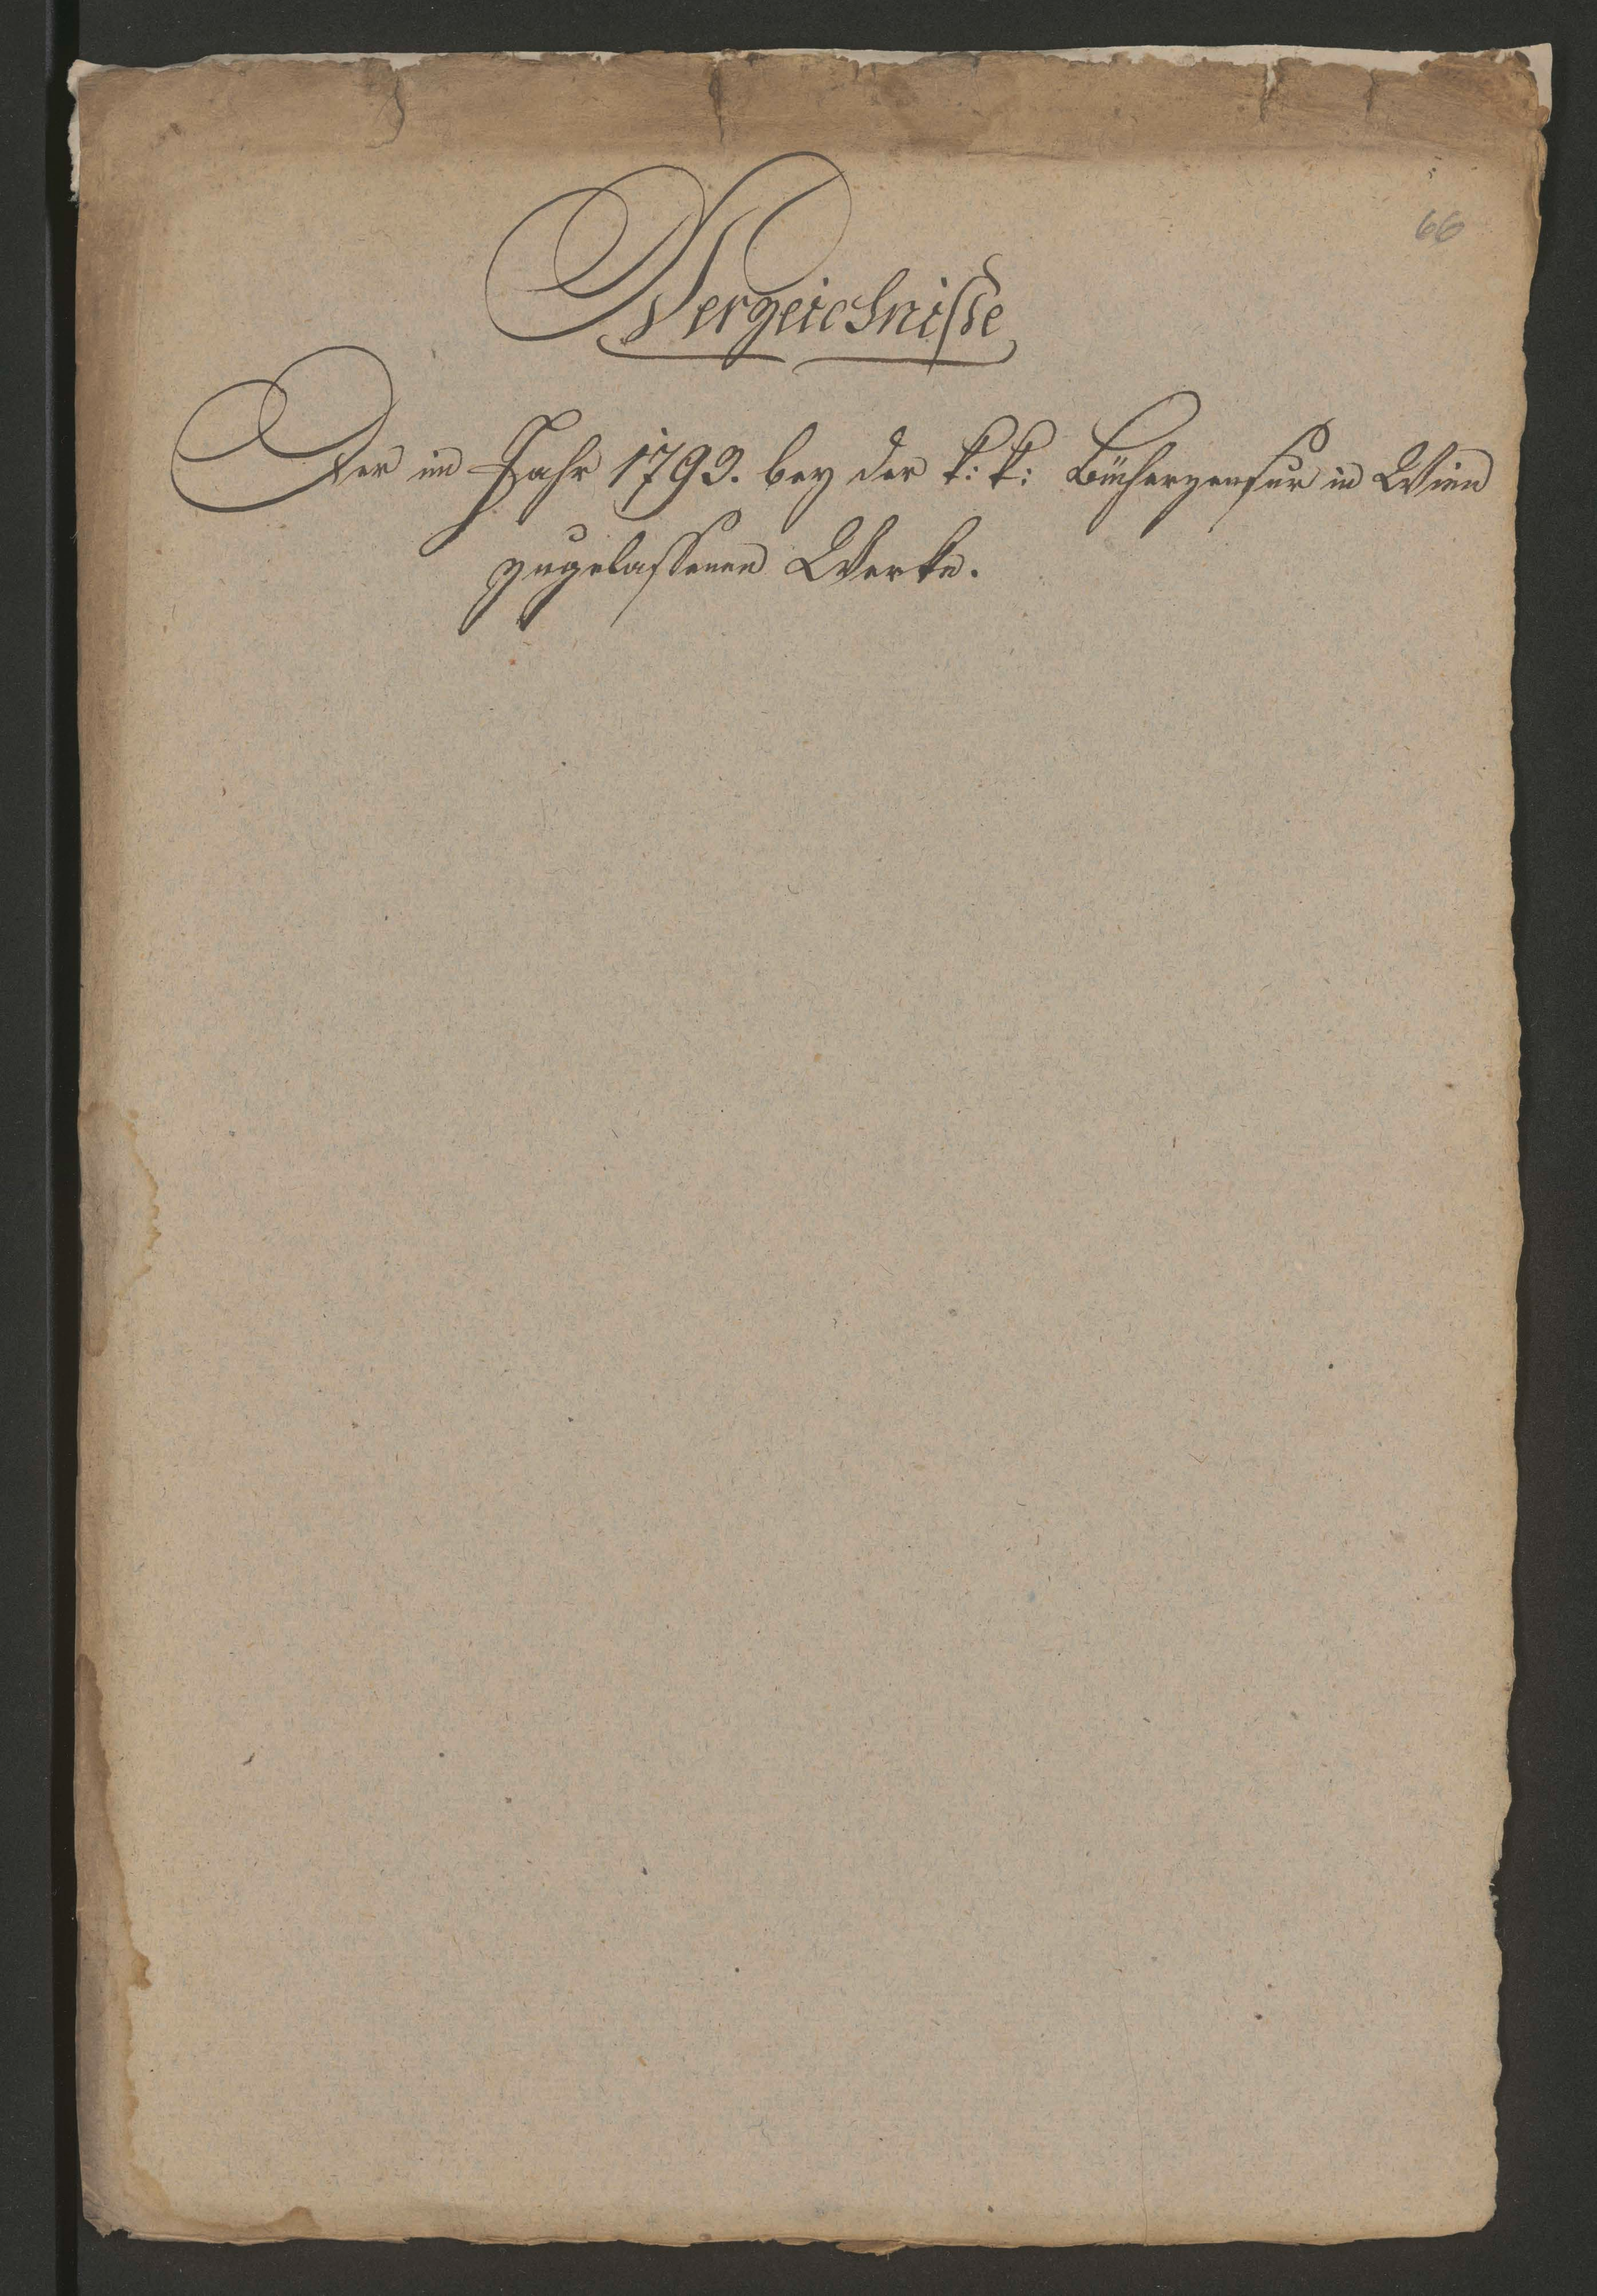 66
Verzeichnisse
Der im Jahr 1793. bey der k: k: Bücherzensur in Wien
zugelassenen Werke.